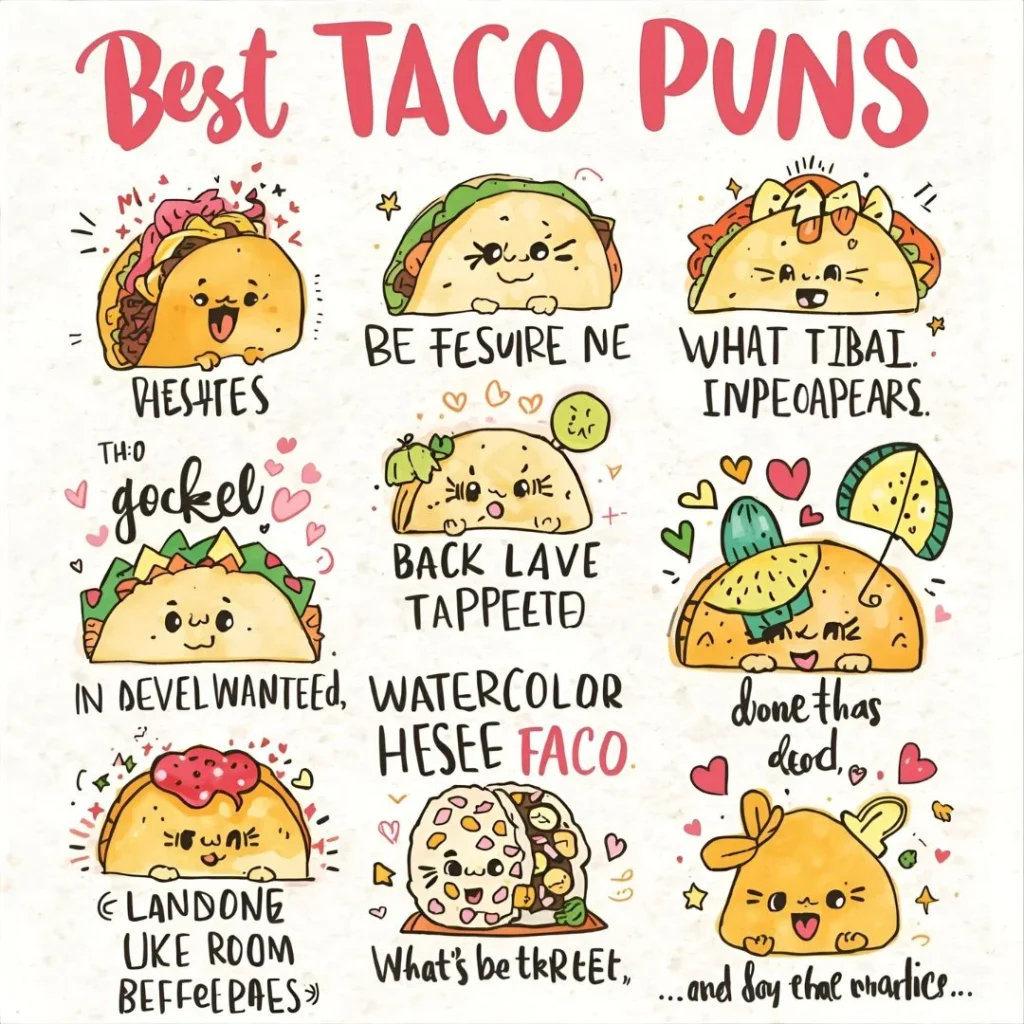 Best TACO PUNS
BE FESUIRE NE
WHAT TIBAI.
INPEOAPEARS.
THO
gockel
BACK LAVE
TAPPEETD
IN DEVELWANTEEd,
WATERCOLOR
HESEE FACO.
done thas
dod,
LANDONE
UKE ROOM
BEFFEEPAES
What's be tkRtEEt,,
...and Soy thal marlice...